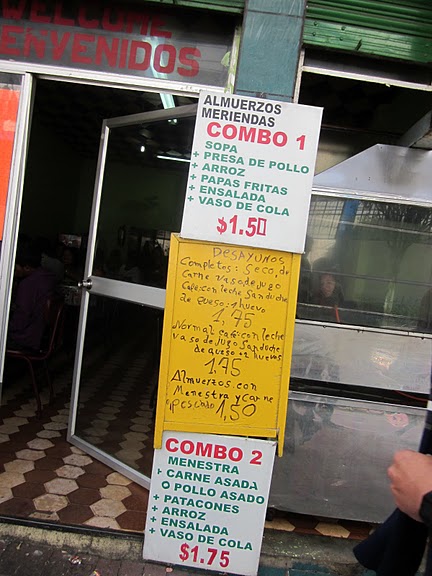 WELCOME
BIENVENIDOS
ALMUERZOS
MERIENDAS
COMBO 1
SOPA
+ PRESA DE POLLO
+ ARROZ
+ PAPAS FRITAS
+ ENSALADA
+ VASO DE COLA
$1.50
DESAYUNOS
Completos: Seco, de
Carne vaso de jugo
Café con leche Sanduche
de queso + 1 huevo
1,75
Normal café con leche
vaso de jugo Sanduche
de queso + 2 huevos
1,75
Almuerzos con
Menestra y carne
o pescado 1,50
COMBO 2
MENESTRA
+ CARNE ASADA
O POLLO ASADO
+ PATACONES
+ ARROZ
+ ENSALADA
+ VASO DE COLA
$1.75